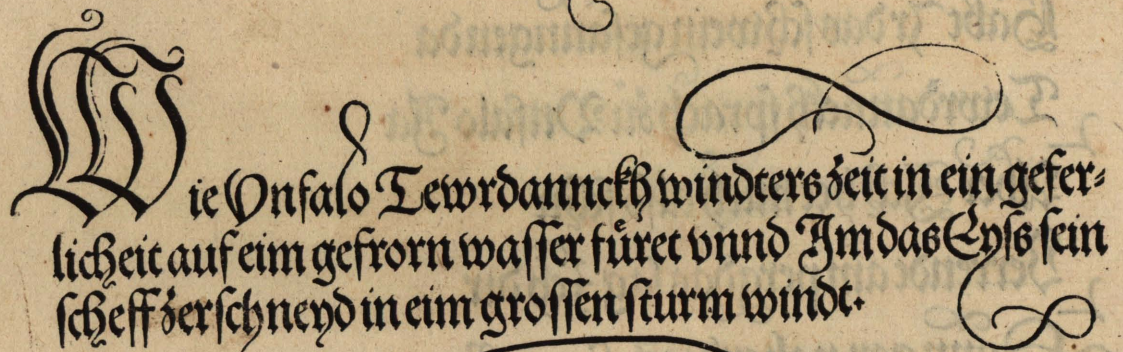 Wie Vnfalo Tewrdannckh windters zeit in ein gefer⸗
licheit auf eim gefrorn wasser fuͤret vnnd Im das Eyſs sein
scheff zerschneyd in eim grossen sturm windt.